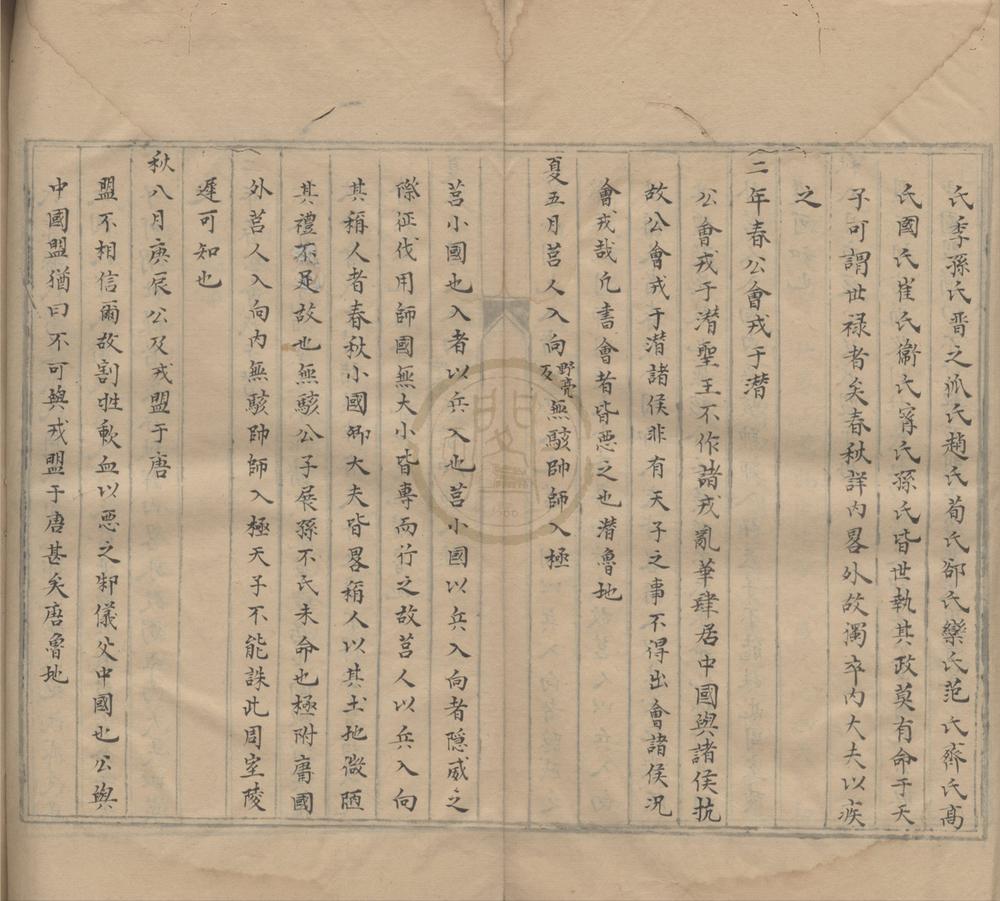 氏季孫氏晋之狐氏趙氏荀氏郤氏欒氏范氏齊氏高
氏國氏崔氏衛氏甯氏孫氏皆世執其政莫有命于天
子可謂世禄者矣春秋詳内畧外故獨卒内大夫以疾
之
二年春公會戎于潜
公會戎于潜聖王不作諸戎亂華肆居中國與諸侯抗
故公會戎于潜諸侯非有天子之事不得出會諸侯况
會戎哉凡書會者皆惡之也潜魯地
夏五月莒人入向野亮反無駭帥師入極
莒小國也入者以兵入也莒小國以兵入向者隠威之
際征伐用師國無大小皆專而行之故莒人以兵入向
其稱人者春秋小國卿大夫皆畧稱人以其土地微陋
其禮不足故也無駭公子展孫不氏未命也極附庸國
外莒人入向内無駭帥師入極天子不能誅此周室陵
遲可知也
秋八月庚辰公及戎盟于唐
盟不相信爾故割牲歃血以惡之邾儀父中國也公與
中國盟猶曰不可與戎盟于唐甚矣唐魯地